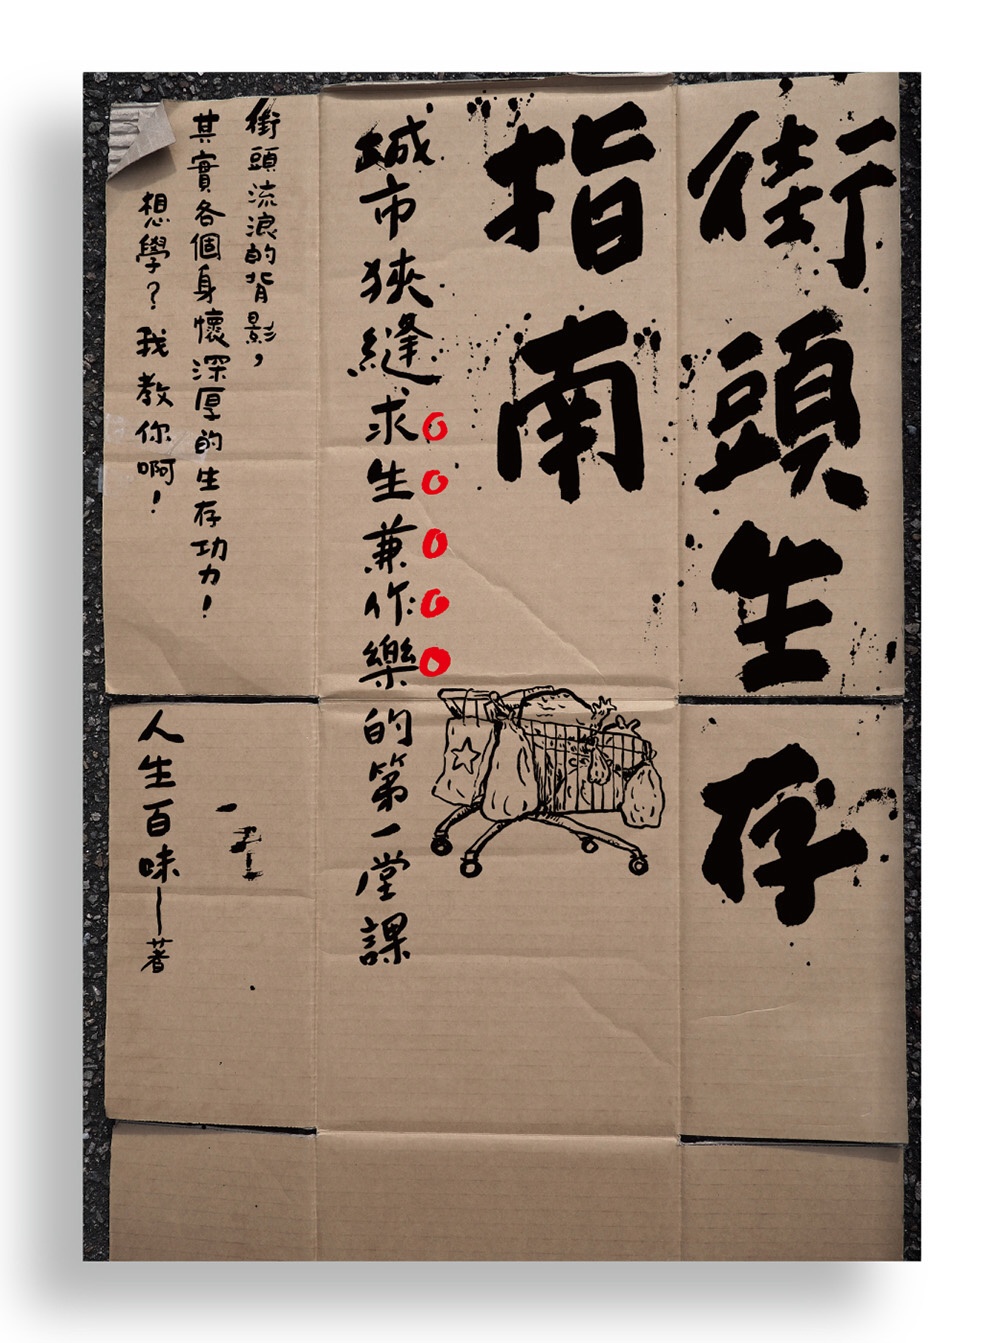 街頭生存
指南
城市狹縫求生兼作樂的第一堂課
街頭流浪的背影，
其實各個身懷深厚的生存功力！
想學？我教你啊！
人生百味｜著